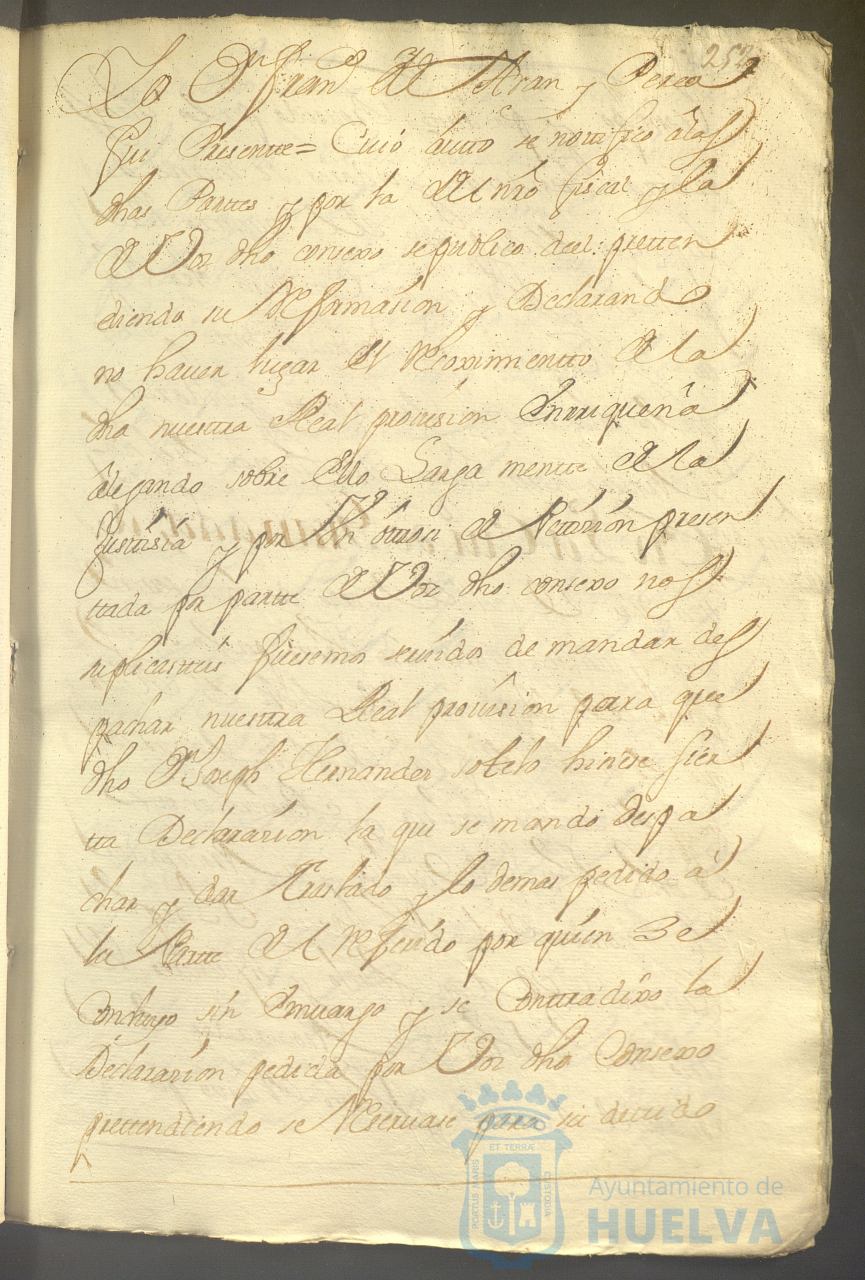 252
Yo Dn Frando de Teran y Perea
fui Presentte = Cuio auto se notifico a las
dhas Partes y por la del nro fiscal y la
de Vos dho consexo se suplico de el pretten
diendo su Reformasion y Declarando
no hauer lugar el Recoximientto de la
dha nuestra Real prouision Enrriqueña
alegando sobre Ello Larga mentte de la
Justisia y por Un ottrosi de Peticion presen
ttada por partte de Vos dho consexo nos
suplicasteis fuesemos seruidos de mandar des
pachar nuestra Real prouision parra que
dho Dn Joseph Hernandez sotelo hiciese sier
ta Declarazion la que se mando despa
char y dar Traslado y lo demas pedido a
la Parte del Referido por quien Se
Concluyo sin Embargo y se Conttradixo la
Declarazion pedida por Vos dho Consexo
prettendiendo se Reseruase para su deuido
Ayuntamiento de
HUELVA
PORTUS MARIS
ET TERRÆ
CUSTODIA